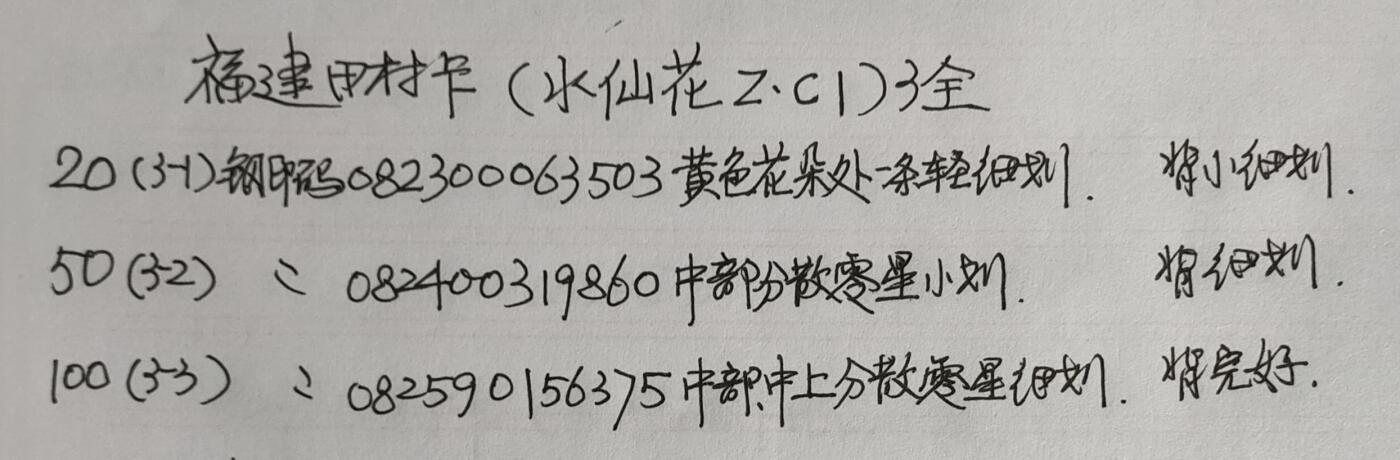 福建田村卡(水仙花Z.C1)3全
20(3-1)钢印码082300063503黄色花朵处一条轻细划. 背小细划.
50(3-2) 〃 082400319860中部分散零星小划. 背细划.
100(3-3) 〃 082590156375中部、中上分散零星细划. 背完好.